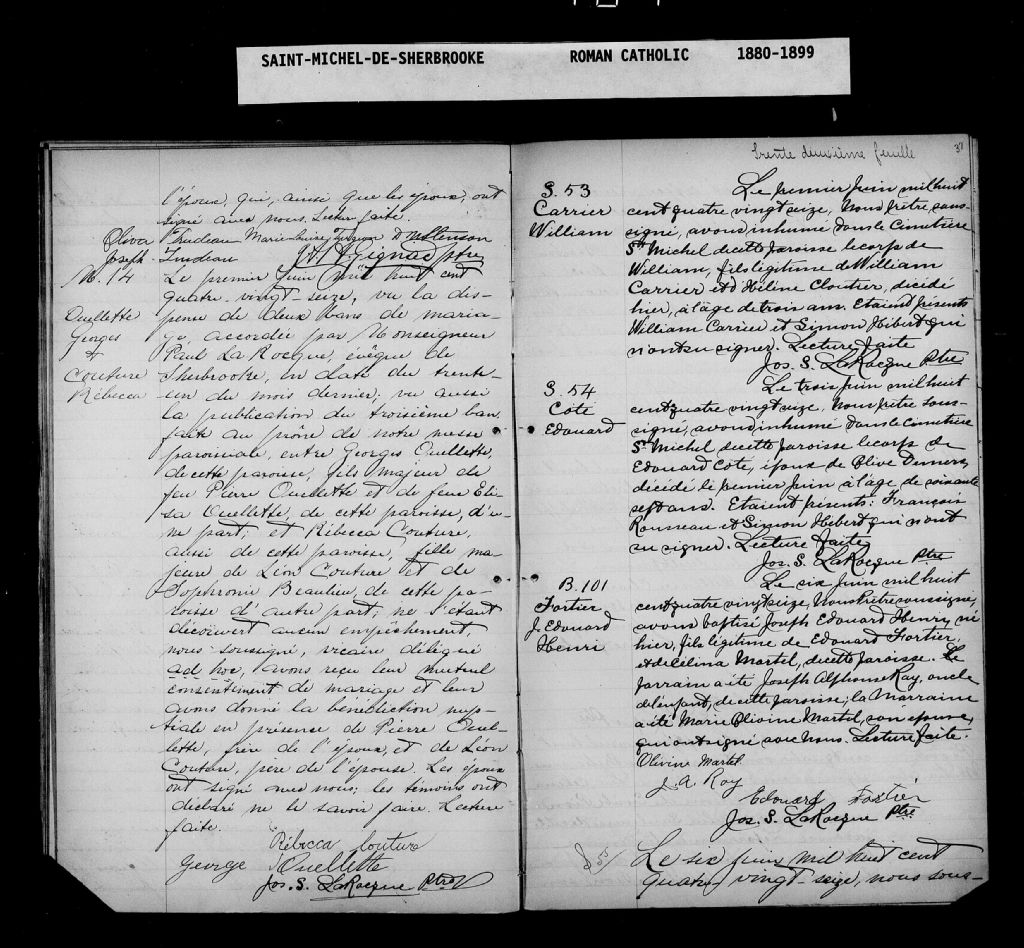 SAINT-MICHEL-DE-SHERBROOKE ROMAN CATHOLIC 1880-1899
l'époux, qui, ainsi que les époux, ont
signé avec nous. Lecture faite.
Oliva Trudeau Marie-Louise
Joseph Trudeau J. A. Gignac Ptre
M. 14
Ouellette
Georges
&
Couture
Rébecca
Le premier Juin mil huit cent
quatre-vingt-seize, vu la dis-
pense de deux bans de maria-
ge, accordée par Monseigneur
Paul LaRocque, évêque de
Sherbrooke, en date du trente-
un du mois dernier; vu aussi
la publication du troisième ban,
faite au prône de notre messe
paroissiale, entre Georges Ouellette,
de cette paroisse, fils majeur de
feu Pierre Ouellette et de feue Eli-
sa Ouellette, de cette paroisse, d'u-
ne part; et Rébecca Couture,
aussi de cette paroisse, fille ma-
jeure de Léon Couture et de
Sophronie Beaulieu, de cette pa-
roisse d'autre part; ne s'étant
découvert aucun empêchement,
nous soussigné, vicaire délégué
ad hoc, avons reçu leur mutuel
consentement de mariage et leur
avons donné la bénédiction nup-
tiale en présence de Pierre Ouel-
lette, frère de l'époux, et de Léon
Couture, père de l'épouse. Les époux
ont signé avec nous; les témoins ont
déclaré ne le savoir faire. Lecture
faite.
Rébecca Couture
George Ouellette
Jos. S. LaRocque Ptre
trente deuxième feuille
S. 53
Carrier
William
Le premier Juin mil huit
cent quatre vingt seize, Nous Prêtre sous-
signé, avons inhumé dans le Cimetière
St Michel de cette Paroisse le corps de
William, fils légitime de William
Carrier et d'Héline Cloutier, décédé
hier, à l'âge de trois ans. Etaient présents
William Carrier et Simon Hébert qui
n'ont su signer. Lecture faite
Jos. S. LaRocque Ptre
S. 54
Côté
Edouard
Le trois Juin mil huit
cent quatre vingt seize, Nous prêtre sous-
signé, avons inhumé dans le Cimetière
St Michel de cette Paroisse le corps de
Edouard Côté, époux de Olive Demers,
décédé le premier Juin à l'âge de soixante
sept ans. Etaient présents: François
Rousseau et Simon Hébert qui n'ont
su signer. Lecture faite
Jos. S. LaRocque Ptre
B. 101
Fortier
J. Edouard
Henri
Le six Juin mil huit
cent quatre vingt seize, Nous Prêtre soussigné,
avons baptisé Joseph Edouard Henri, né
hier, fils légitime de Edouard Fortier,
et de Célina Martel, de cette Paroisse. Le
Parrain a été Joseph Alphonse Ray, oncle
de l'enfant, de cette Paroisse; la Marraine
a été Marie Olivine Martel, son épouse,
qui ont signé avec Nous. Lecture faite.
Olivine Martel
J. A. Roy
Edouard Fortier
Jos. S. LaRocque Ptre
S 55
Le six juin mil huit cent
quatre-vingt-seize, nous sous-